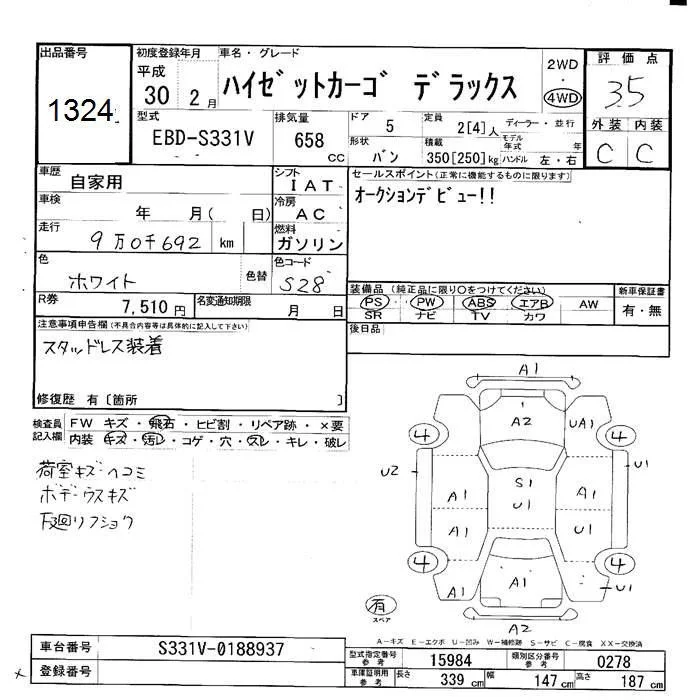 出品番号 初度登録年月 車名・グレード 2WD 評価点
平成 ハイゼットカーゴ デラックス ・ 3.5
1324 30 2月 4WD 外装 内装
型式 排気量 ドア 5 定員 2[4]人 ディーラー・並行 C C
EBD-S331V 658 cc 形状 バン 積載 350[250]kg モデル年式 年
ハンドル 左・右
車歴 自家用 シフト IAT セールスポイント(正常に機能するものに限ります)
車検 年 月( 日) 冷房 AC オークションデビュー!!
走行 9万0千692 km 燃料 ガソリン
色 ホワイト 色替 色コード S28
装備品 (純正品に限り○をつけてください) 新車保証書
R券 7,510円 名変通知期限 月 日 PS PW ABS エアB AW 有・無
SR ナビ TV カワ
注意事項申告欄(不具合内容等は具体的に記入して下さい) 後日品
スタッドレス装着
修復歴 有〔箇所 〕
検査員記入欄 FW キズ・飛石・ヒビ割・リペア跡・×要
内装 キズ・汚レ・コゲ・穴・スレ・キレ・破レ
荷室キズ・ヘコミ
ボデーウスキズ
下廻リフショク
A1
1
A2 UA1
4 4
U2 U1
S1
A1 U1 A1
A1 U1
4 4
A1 A1 U1
有
スペア
A2
A-キズ E-エクボ U-凹み W-補修跡 S-サビ C-腐食 XX-交換済
車台番号 S331V-0188937 型式指定番号 参考 15984 類別区分番号 参考 0278
登録番号 車庫証明用 参考 長さ 339cm 幅 147cm 高さ 187cm